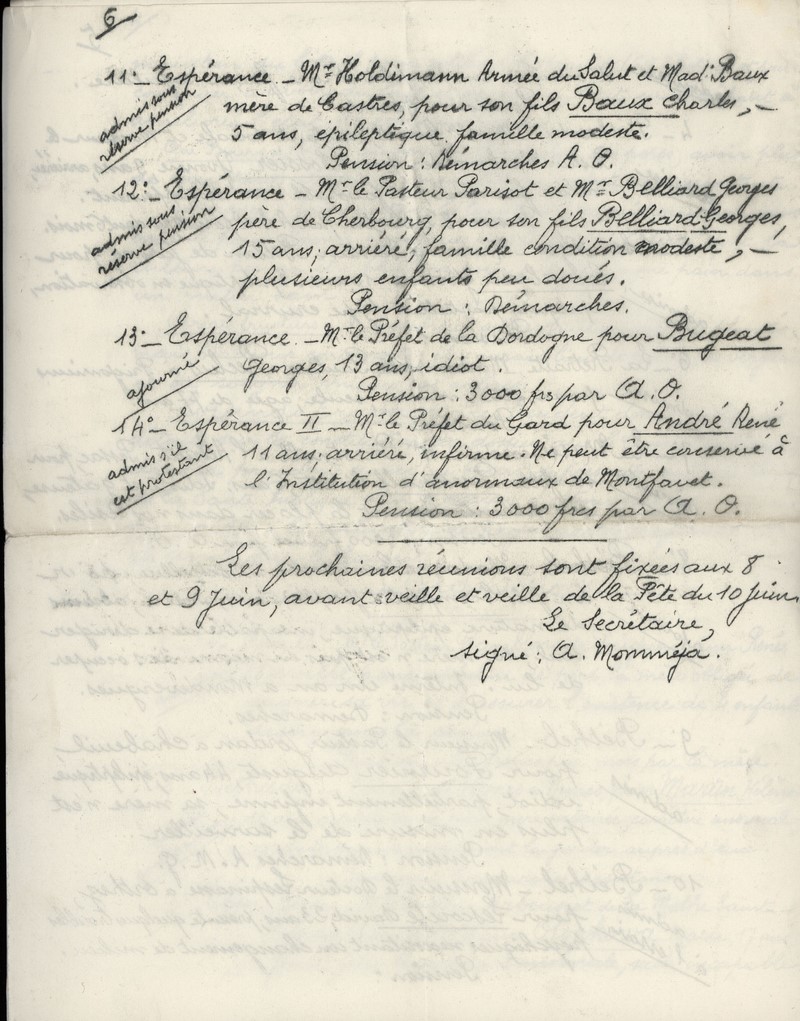 6
11°_ Espérance _ Mr Holdimann Armée du Salut et Made Baux
admis sous
réserve pension
mère de Castres, pour son fils Baux Charles, _
5 ans, épileptique. famille modeste.
Pension : Démarches A. O.
12°_ Espérance _ Mr le Pasteur Parisot et Mr Belliard Georges
admis sous
réserve pension
père de Cherbourg, pour son fils Belliard Georges,
15 ans, arriéré, famille condition modeste, _
plusieurs enfants peu doués.
Pension : Démarches.
13°_ Espérance. _ Mr le Préfet de la Dordogne pour Bugeat
ajourné
Georges, 13 ans, idiot.
Pension : 3000 frs par A. O.
14°_ Espérance II _ Mr le Préfet du Gard pour André René
admis s'il
est protestant
11 ans, arriéré, infirme. Ne peut être conservé à
l'Institution d'anormaux de Montfavet.
Pension : 3000 frcs par A. O.
Les prochaines réunions sont fixées aux 8
et 9 Juin, avant-veille et veille de la Fête du 10 Juin.
Le Secrétaire,
signé : A. Momméja.